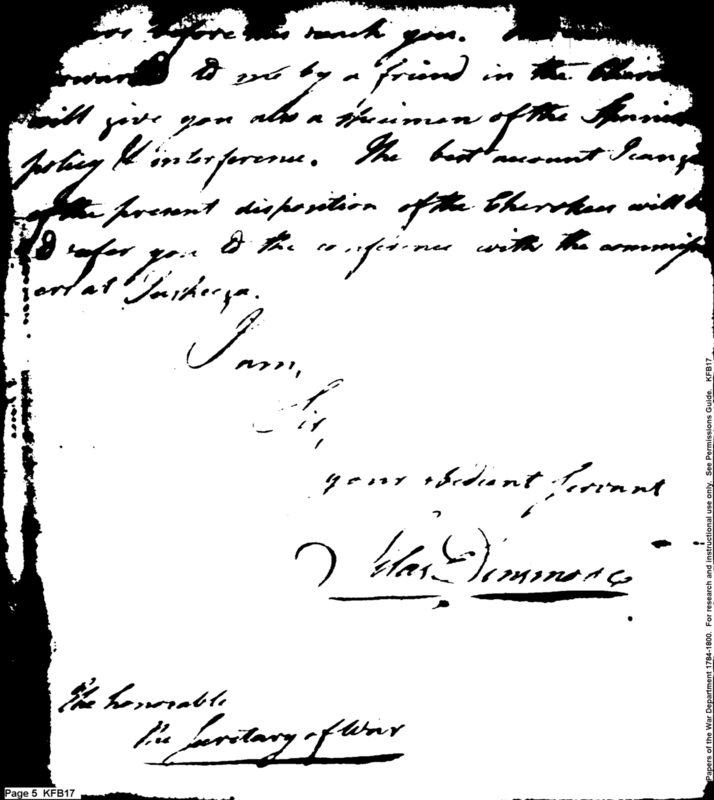 before this reach you.
to me by a friend in the
will give you also a specimen of the
policy & interference. The best account I can
of the present disposition of the Cherokees will be
to refer you to the conference with the commissi
ors at
I am,
Sir,
your obedient servant
Silas Dinsmoor
The honorable
The Secretary of War
Page 5 KFB17
Papers of the War Department 1784-1800. For research and instructional use only. See Permissions Guide. KFB17